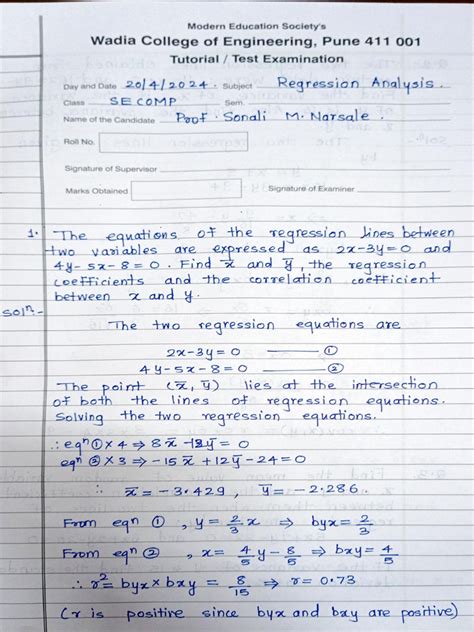 Modern Education Society's
Wadia College of Engineering, Pune 411 001
Tutorial / Test Examination
Day and Date 20/4/2024. Subject Regression Analysis.
Class SE COMP Sem.
Name of the Candidate Prof. Sonali M. Narsale.
Roll No.
Signature of Supervisor
Marks Obtained Signature of Examiner
1. The equations of the regression lines between
two variables are expressed as 2x-3y=0 and
4y-5x-8=0. Find x̅ and y̅, the regression
coefficients and the correlation coefficient
between x and y.
Solⁿ-
The two regression equations are
2x-3y=0 —— ①
4y-5x-8=0 —— ②
The point (x̅, y̅) lies at the intersection
of both the lines of regression equations.
Solving the two regression equations.
∴ eqⁿ ① × 4 ⇒ 8x̅ -12y̅ = 0
eqⁿ ② × 3 ⇒ -15x̅ + 12y̅ - 24 = 0
∴ x̅ = -3.429, y̅ = -2.286..
From eqⁿ ①, y = 2/3 x ⇒ byx = 2/3
From eqⁿ ②, x = 4/5 y - 8/5 ⇒ bxy = 4/5
∴ r² = byx × bxy = 8/15 ⇒ r = 0.73
(r is positive since byx and bxy are positive)